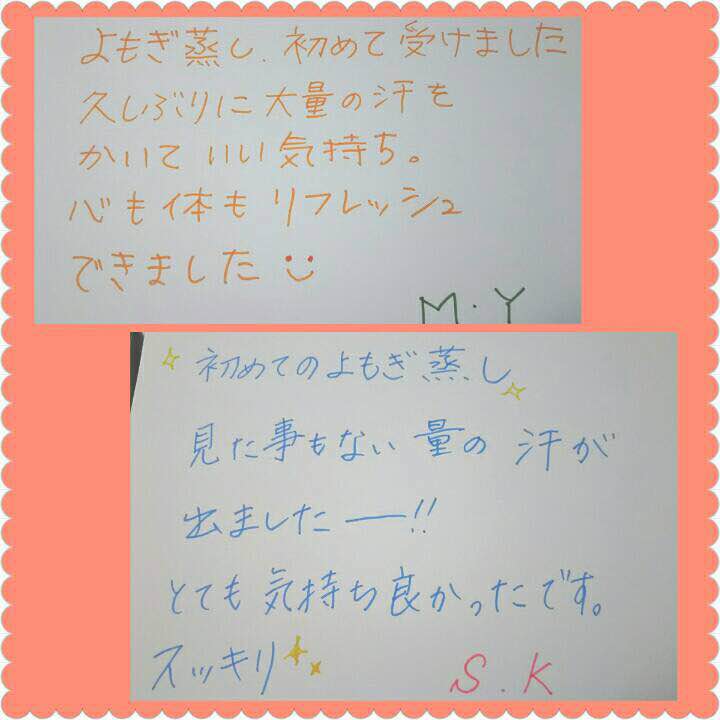 よもぎ蒸し、初めて受けました
久しぶりに大量の汗を
かいていい気持ち。
心も体もリフレッシュ
できました
M.Y
初めてのよもぎ蒸し
見た事もない量の汗が
出ましたー!!
とても気持ち良かったです。
スッキリ
S.K